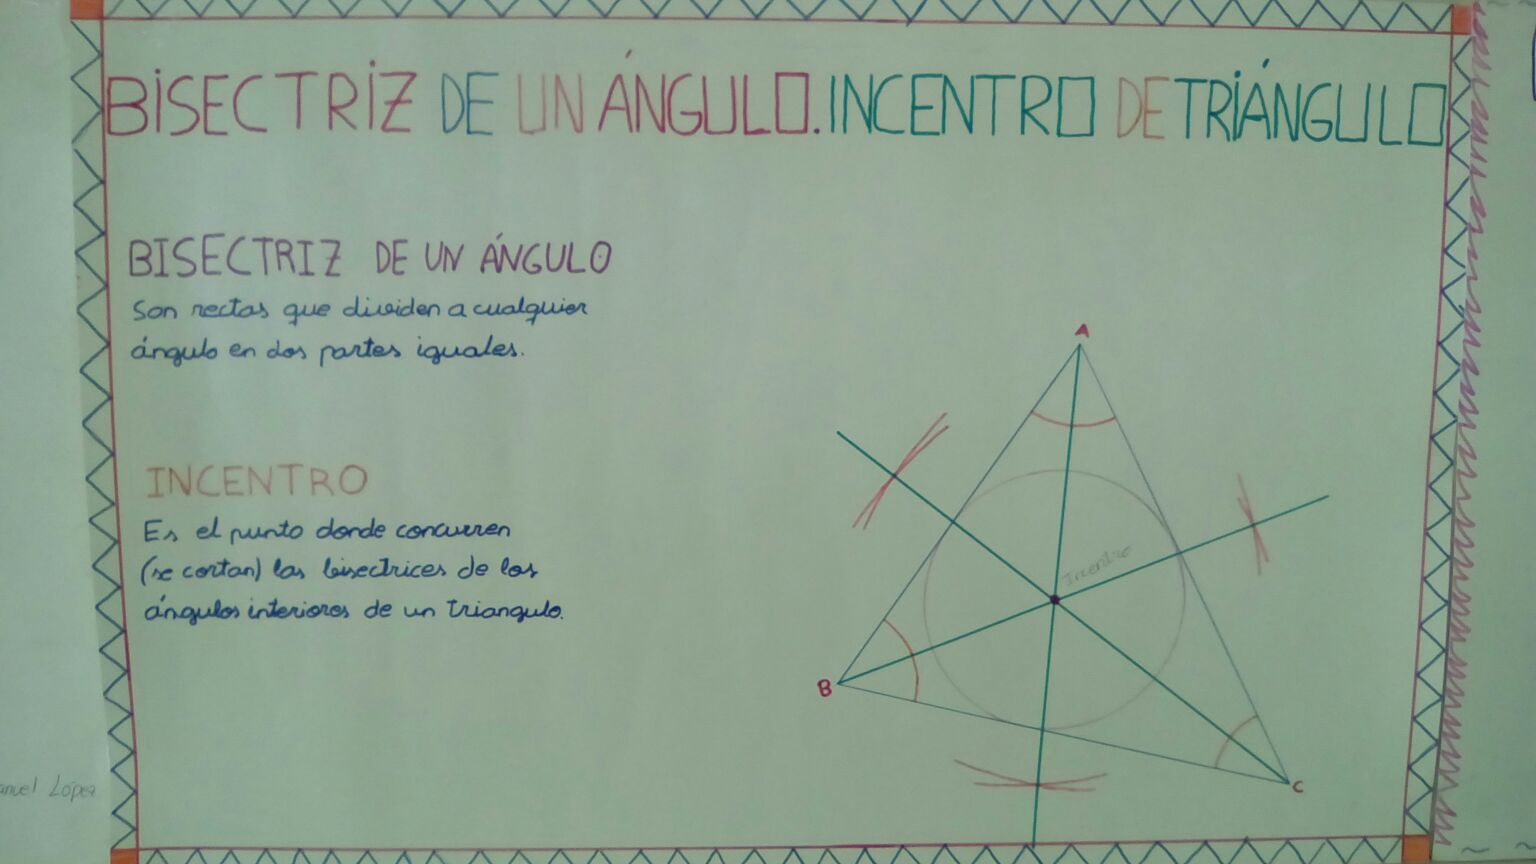 BISECTRIZ DE UN ÁNGULO. INCENTRO DE TRIÁNGULO
BISECTRIZ DE UN ÁNGULO
Son rectas que dividen a cualquier
ángulo en dos partes iguales.
INCENTRO
Es el punto donde concurren
(se cortan) las bisectrices de los
ángulos interiores de un triangulo.
A
Incentro
B
C
López